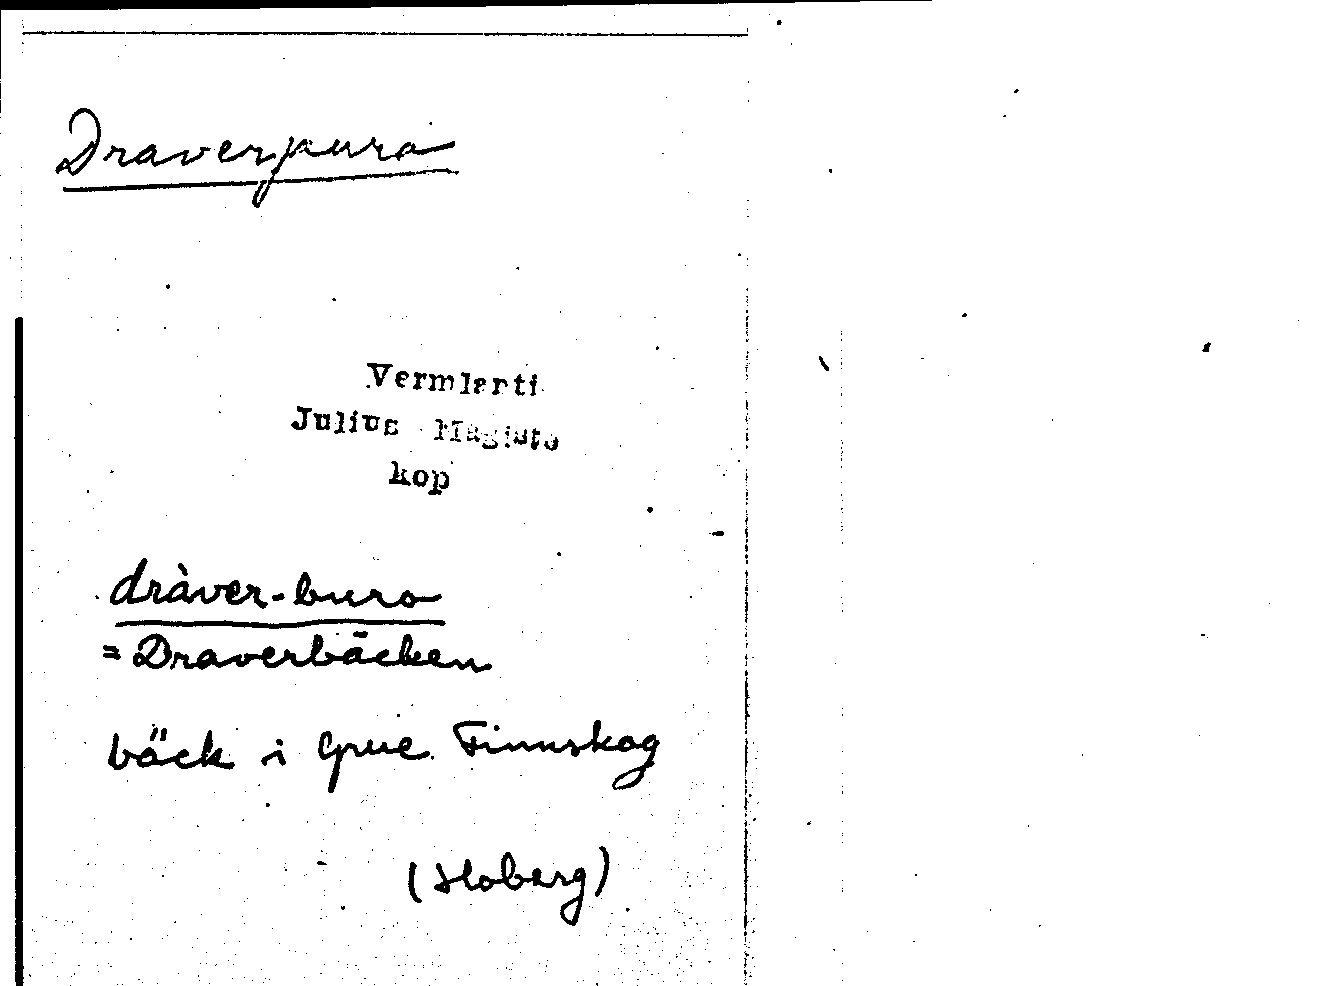 Draverpuro
Vermlanti
Julius Mägiste
kop
dràver-buro
= Draverbäcken
bäck i Grue Finnskog
(Hoberg)